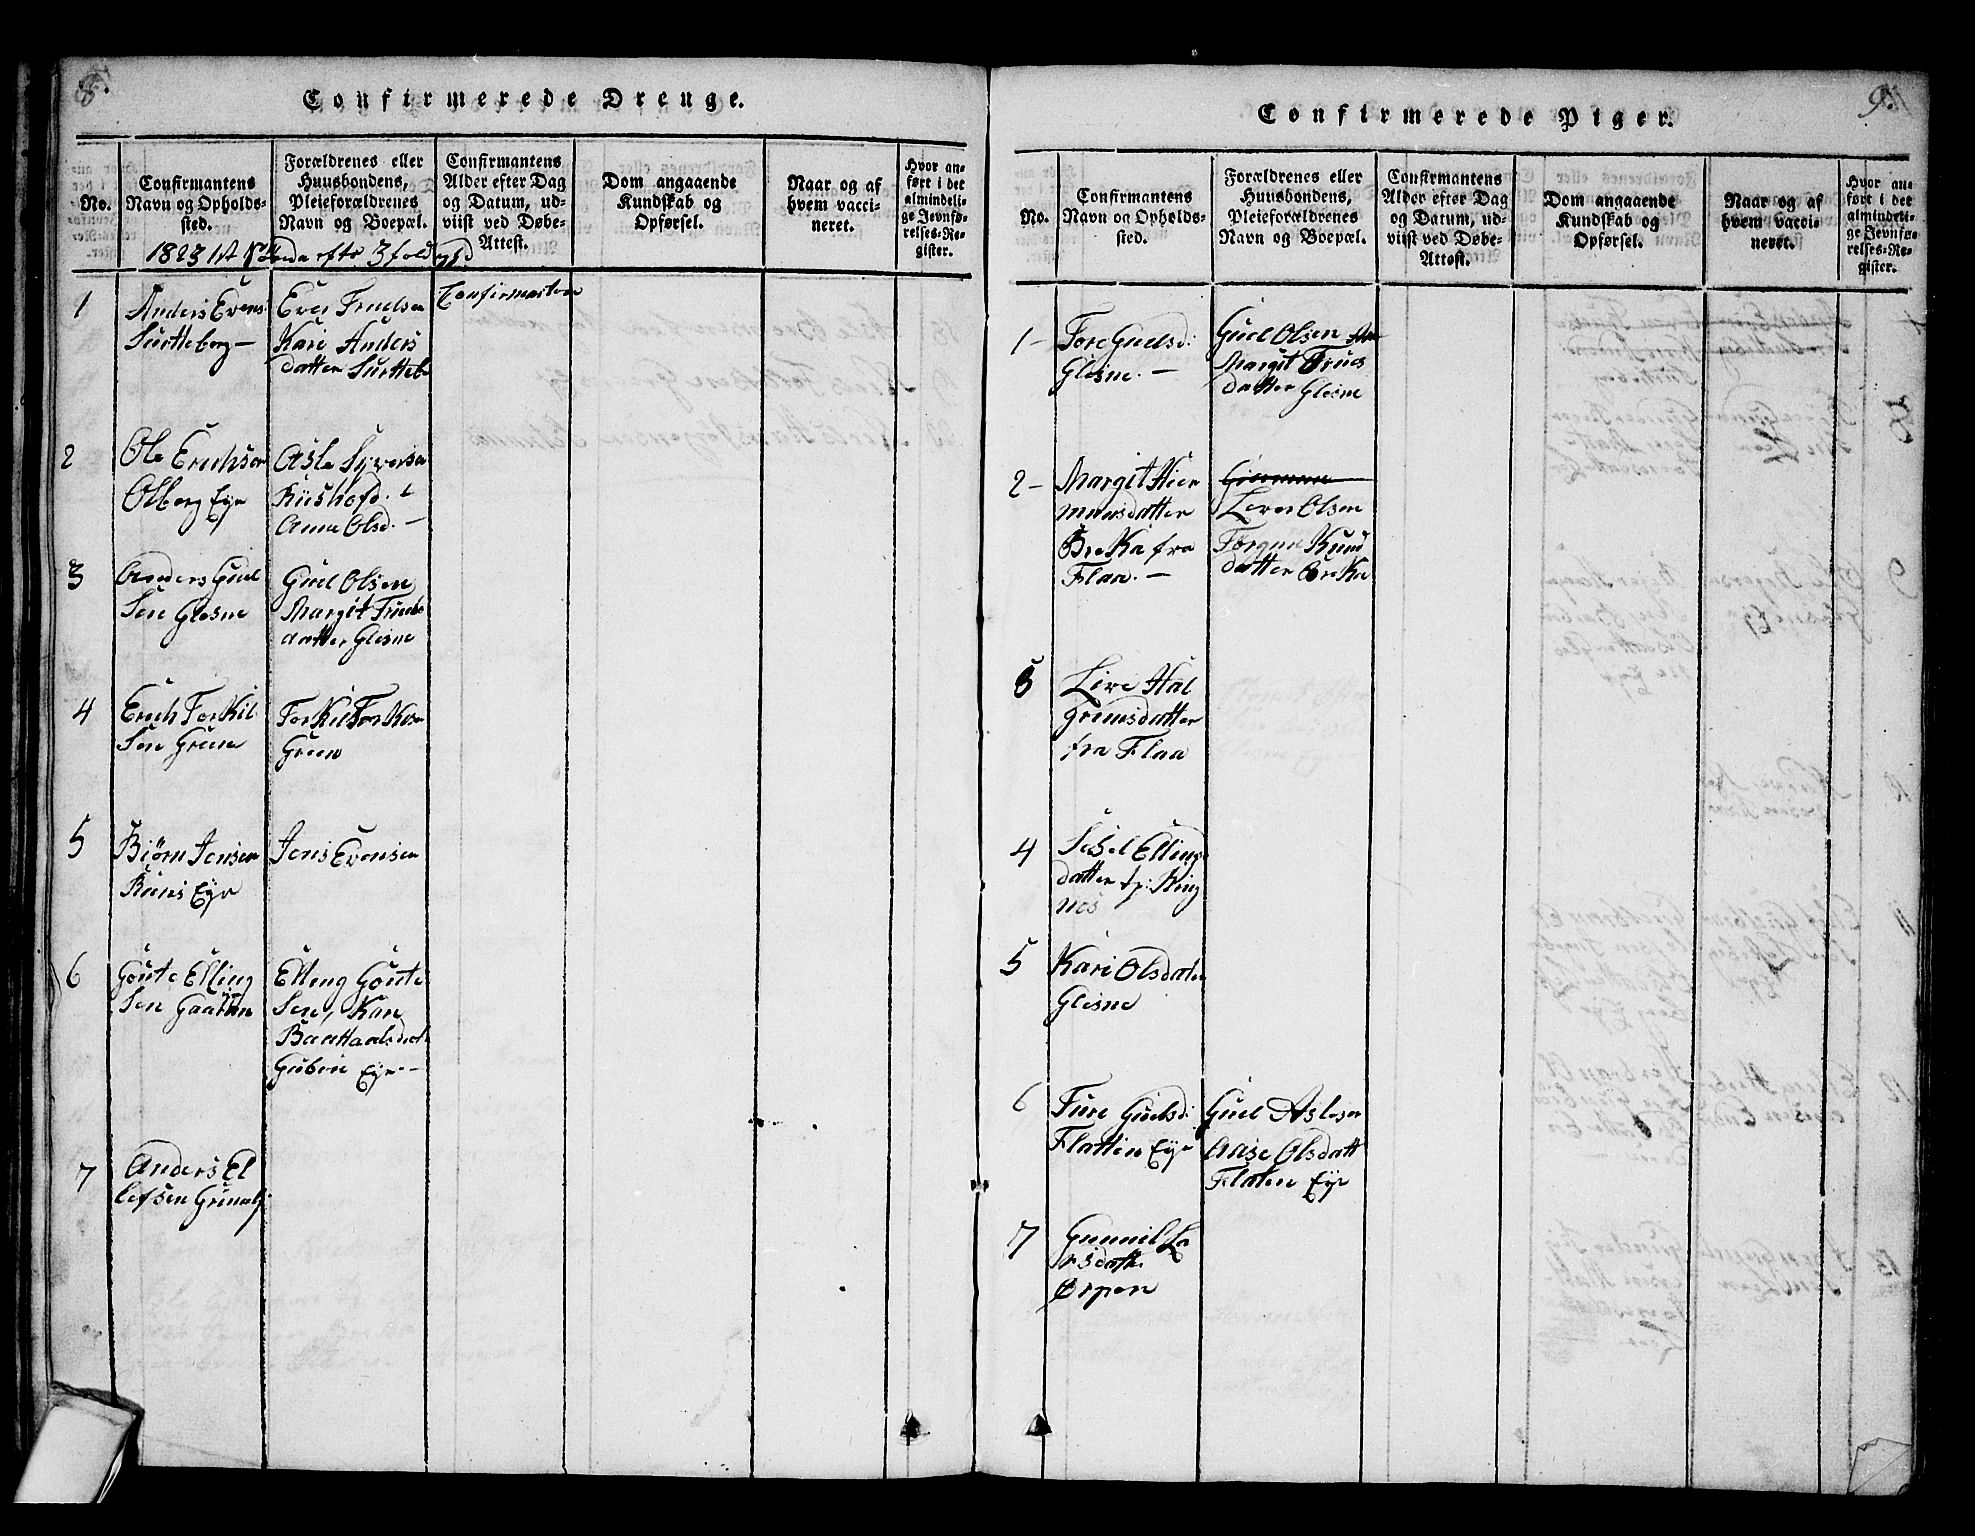 8.
Confirmerede Drenge.
No.
Confirmantens
Navn og Opholds-
sted.
Forældrenes eller
Huusbondens,
Pleieforældrenes
Navn og Boepæl.
Confirmantens
Alder efter Dag
og Datum, ud-
viist ved Døbe-
Attest.
Dom angaaende
Kundskab og
Opførsel.
Naar og af
hvem vacci-
neret.
Hvor an-
ført i det
almindeli-
ge Jevnfø-
relses-Re-
gister.
1823
1
Anders Evens:
Surtteberg —
Even Truelsen
Kari Anders
datter Surtteb
Confirmation
2
Ole Erichsen
Olberg Eye
Asle Syversen
Anne Olsd. —
3
Anders Guul
Sen Glesne
Guul Olsen
Margit Truels
datter Glesne
4
Erich Torkil
Sen Green
Torkil Torkels
Green
5
Biörn Jonsen
Ruus Eye
Jons Evensen
6
Goute Elling
Sen Gaarden
Elling Goute
Sen, Kari
Gubin Eye —
7
Anders El
lefsen Grimelj
9.
Confirmerede Piger.
No.
Confirmantens
Navn og Opholds-
sted.
Forældrenes eller
Huusbondens,
Pleieforældrenes
Navn og Boepæl.
Confirmantens
Alder efter Dag
og Datum, ud-
viist ved Døbe-
Attest.
Dom angaaende
Kundskab og
Opførsel.
Naar og af
hvem vacci-
neret.
Hvor an-
ført i det
almindeli-
ge Jevnfø-
relses-Re-
gister.
1 —
Tore Guulsd:
Glesne. —
Guul Olsen
Margit Trues
datter Glesne
2 —
Margit Her
mansdatter
Breka fra
Flaa. —
Lever Olsen
Torgun Knud
datter Breka
3
Live Hal
Grimsdatter
fra Flaa
4
Sesel Elling
datter fr: Ring
nes
5
Kari Olsdater
Glesne
6
Ture Guulsd:
Flatten Eye
Guul Aslesen
Aase Olsdatt
Flaten Eye
7
Gunnil La
rsdatt.
Ørpen